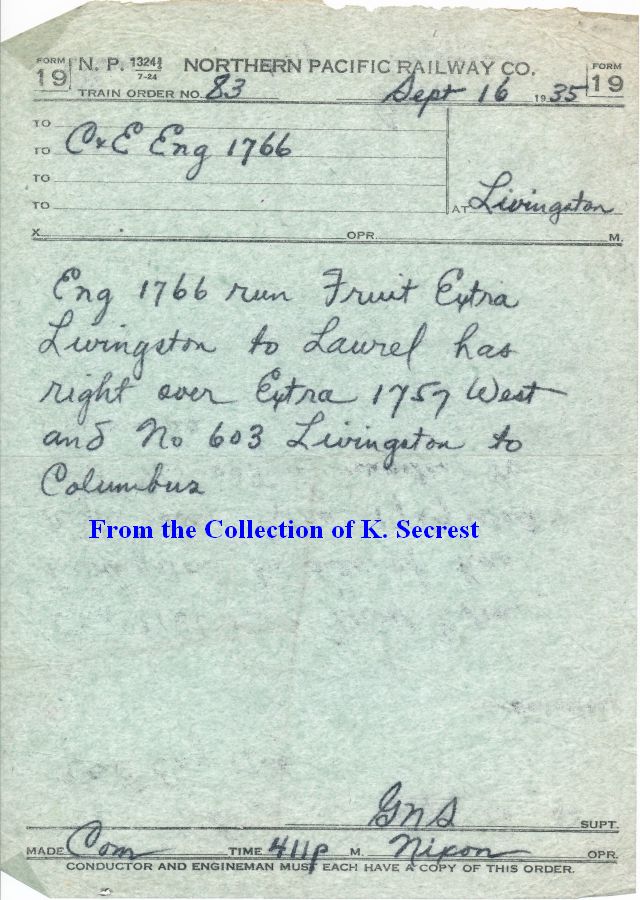 FORM 19 N. P. 1324½ 7-24 NORTHERN PACIFIC RAILWAY CO. FORM 19
TRAIN ORDER NO. 83 Sept 16 1935
TO
TO C&E Eng 1766
TO
TO AT Livingston
X OPR. M.
Eng 1766 run Fruit Extra
Livingston to Laurel has
right over Extra 1757 West
and No 603 Livingston to
Columbus
From the Collection of K. Secrest
GNS SUPT.
MADE Com TIME 411p M. Nixon OPR.
CONDUCTOR AND ENGINEMAN MUST EACH HAVE A COPY OF THIS ORDER.